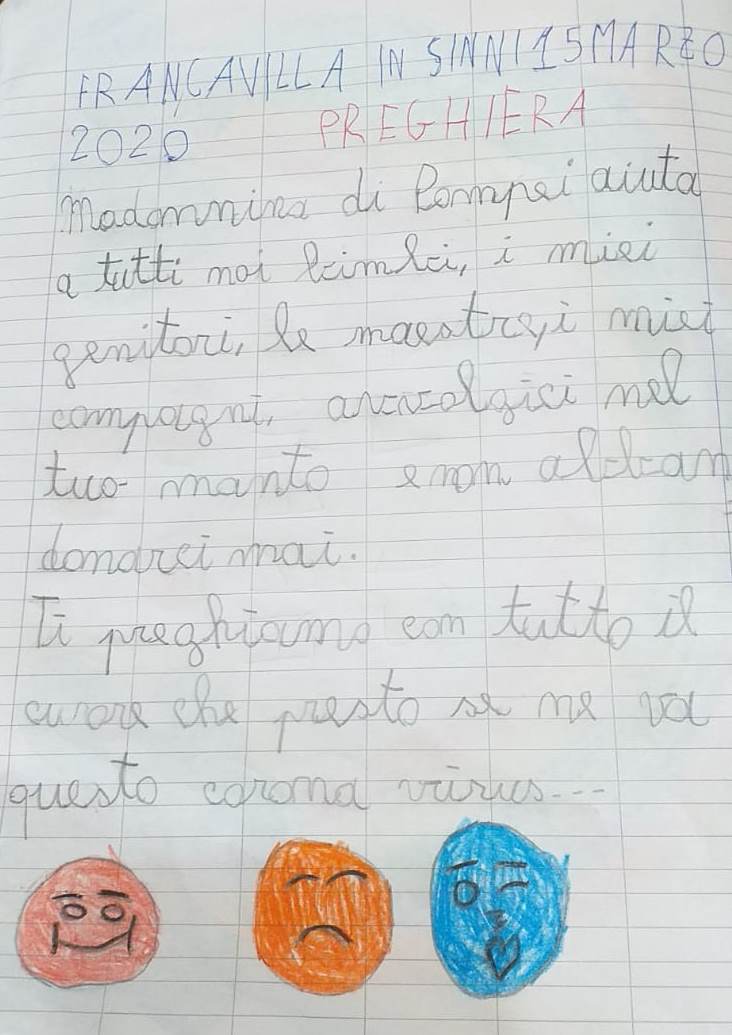 FRANCAVILLA IN SINNI 15 MARZO
2020 PREGHIERA
Madonnina di Pompei aiuta
a tutti noi bimbi, i miei
genitori, le maestre, i miei
compagni, avvolgici nel
tuo manto e non abban
donarci mai.
Ti preghiamo con tutto il
cuore che presto se ne va
questo corona virus...